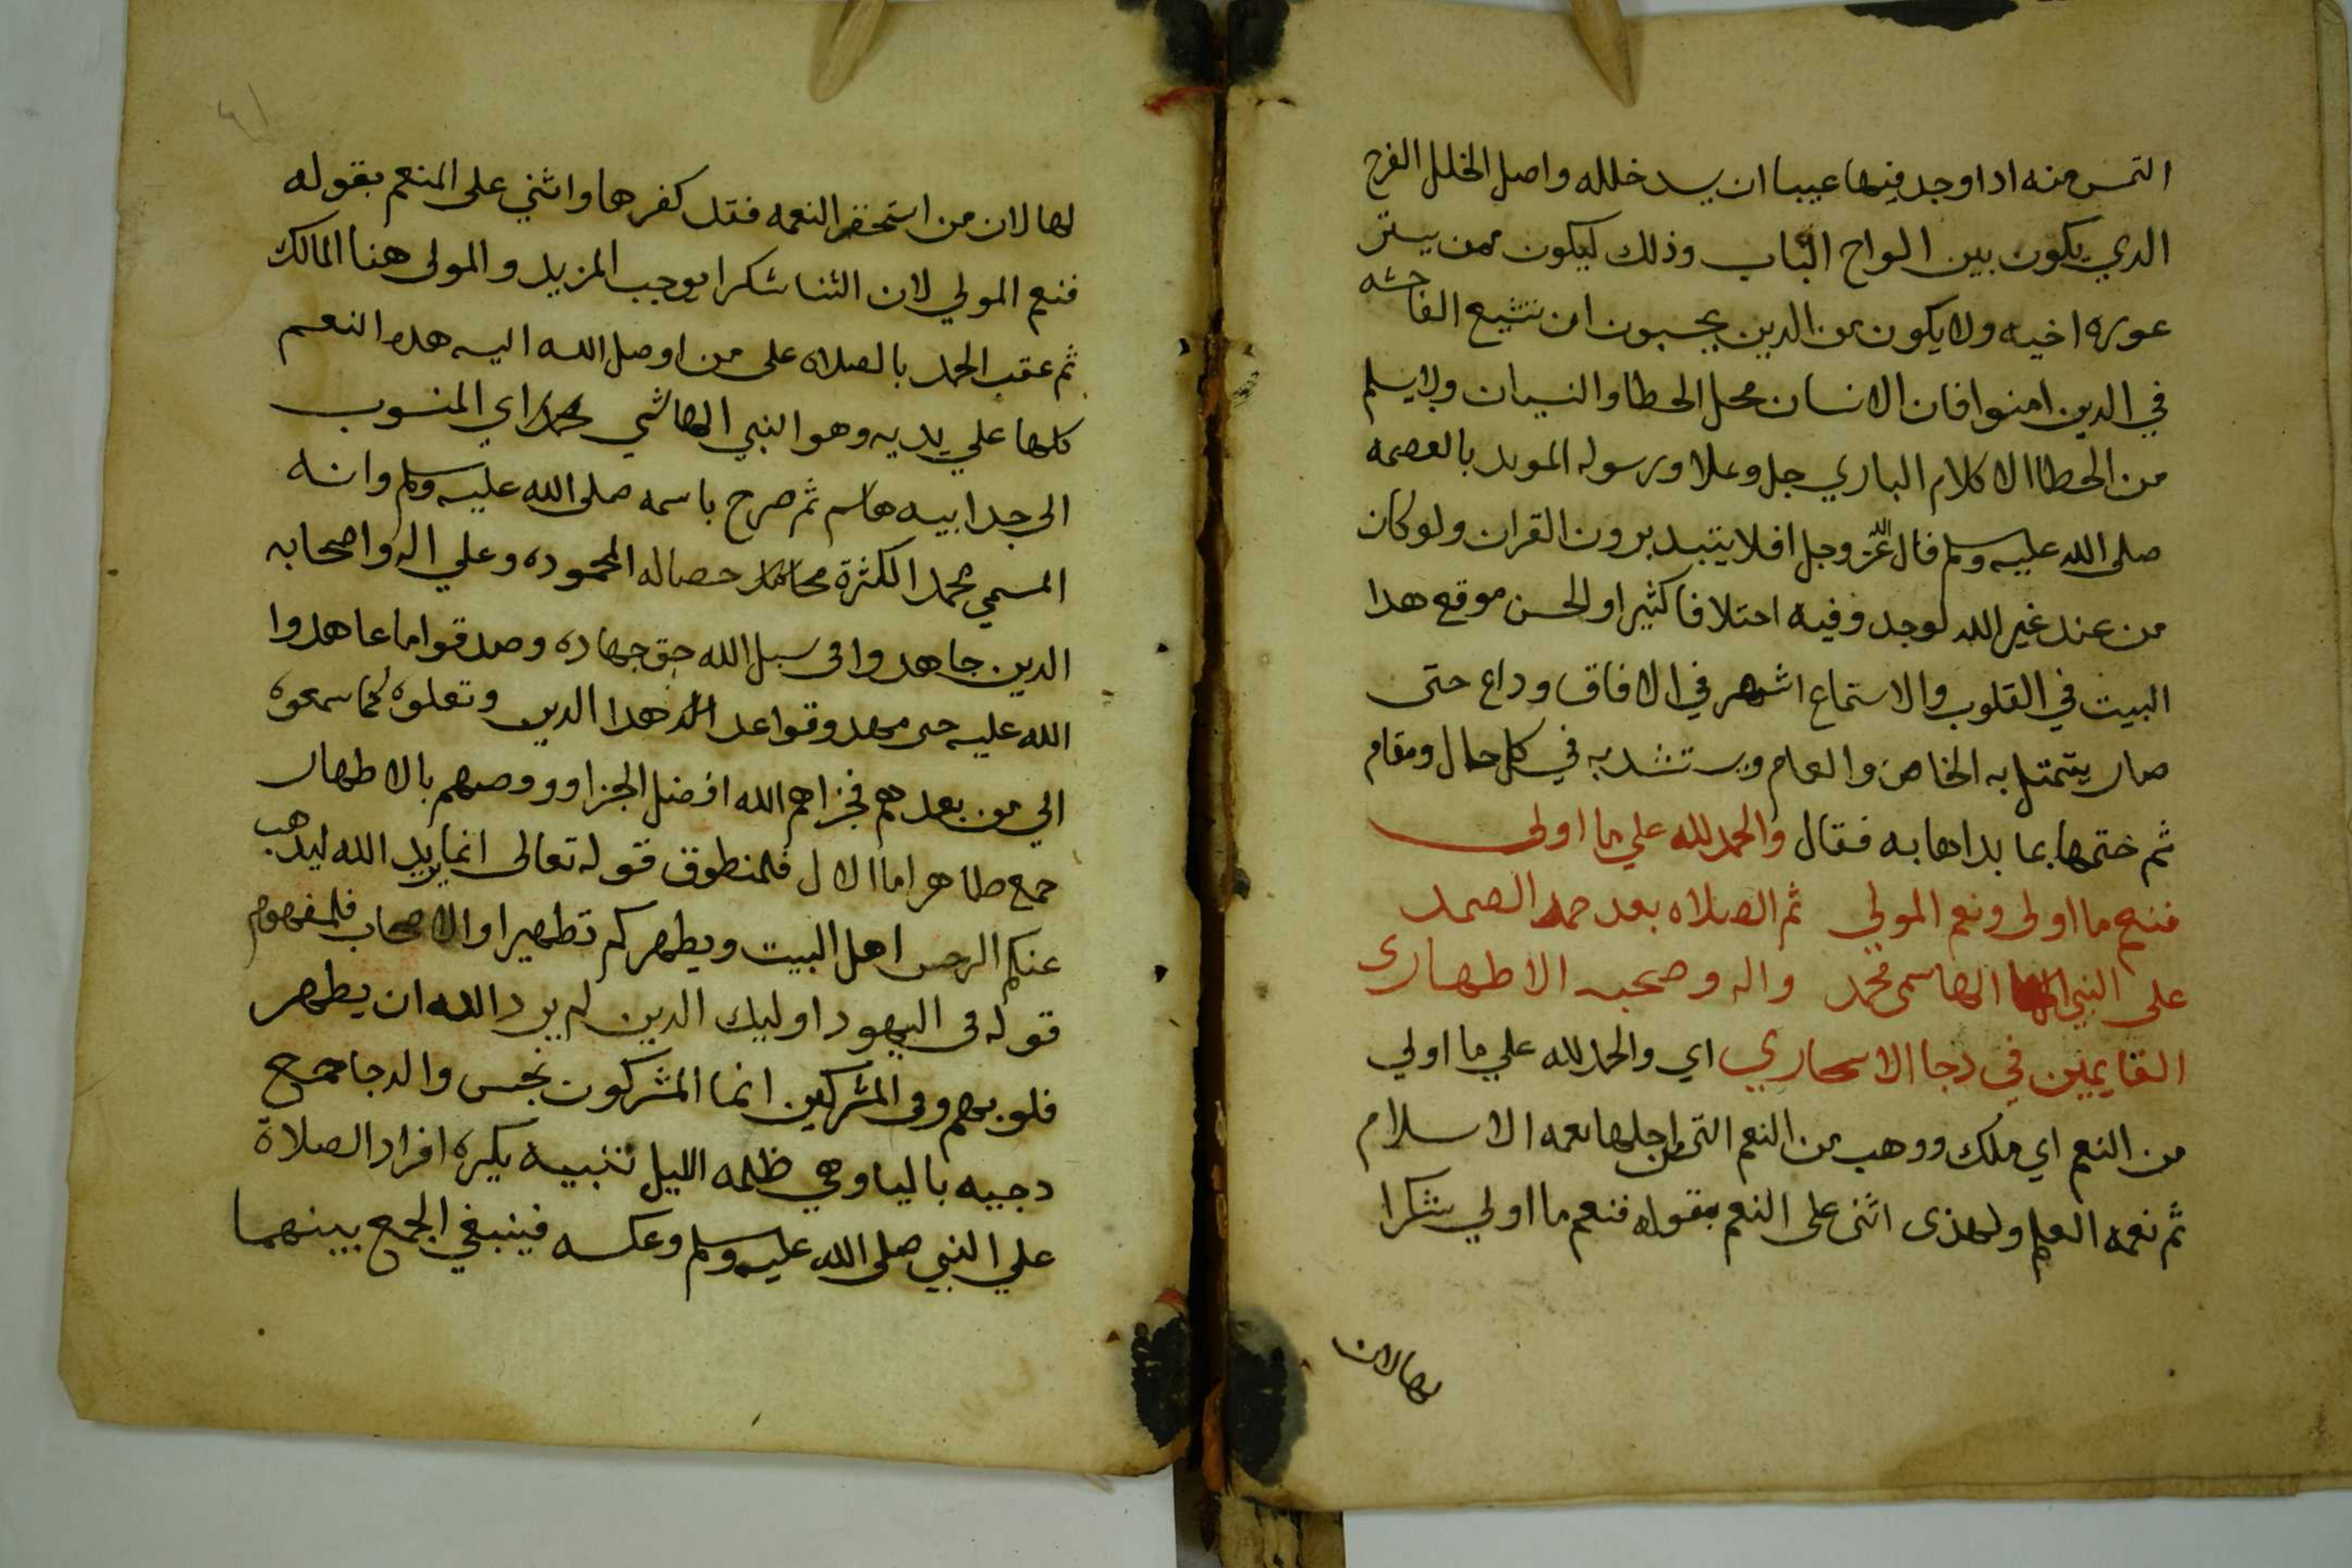 التمس منه ادا وجد فيها عيبا ان يسد خلله واصل الخلل الفرج
الدي يكون بين الواح الباب وذلك ليكون ممن يستر
عوره اخيه ولا يكون من الدين يحبون ان تشيع الفاحشه
في الدين امنوا فان الانسان محل الخطا والنسيان ولا يسلم
من الخطا الا كلام الباري جل وعلا ورسوله المويد بالعصمه
صلى الله عليه وسلم قال الله عز وجل افلا يتبدبرون القران ولو كان
من عند غير الله لوجدو فيه اختلافا كثيرا ولحسن موقع هدا
البيت في القلوب والاستماع اشهر في الافاق وداع حتى
صار يتمثل به الخاص والعام ويستشد به في كل حال ومقام
ثم ختمها بما بداها به فقال والحمد لله علي ما اولى
فنعم ما اولى ونعم المولي ثم الصلاه بعد حمد الصمد
على النبي الهاسمي محمد واله وصحبه الاطهاري
القايمين في دجا الاسحاري اي والحمد لله علي ما اولي
من النعم اي ملك ووهب من النعم التي من اجلها نعمه الاسلام
ثم نعمه العلم ولهذى اثنى على النعم بقوله فنعم ما اولي شكرا
لها لان
لها لان من استحقر النعمه فقد كفرها واثني على المنعم بقوله
فنعم المولي لان الثنا شكرا موجب المزيد والمولى هنا المالك
ثم عقب الحمد بالصلاه على من اوصل الله اليه هده النعم
كلها علي يديه وهو النبي الهاشمي محمد اي المنسوب
الى جد ابيه هاسم ثم صرح باسمه صلى الله عليه وسلم وانه
المسمي محمد الكثرة خصاله المحموده وعلي اله واصحابه
الدين جاهدوا في سبل الله حق جهاده وصدقوا ما عاهدوا
الله عليه حتى مهدو قواعد هدا الدين ونقلوه كما سمعوه
الي من بعدهم فجزاهم الله افضل الجزا ووصهم بالاطهار
جمع طاهر اما الال فلمنطوق قوله تعالى انما يريد الله ليدهب
عنكم الرجس اهل البيت ويطهركم تطهيرا والاصحاب فلمفهوم
قوله في اليهود اوليك الدين لم يرد الله ان يطهر
قلوبهم وفي المشركين انما المشركون نجس والدجا جمع
دجيه باليا وهي ظلمه الليل تنبيه يكره افراد الصلاة
علي النبي صلى الله عليه وسلم وعكسه فينبغي الجمع بينهما